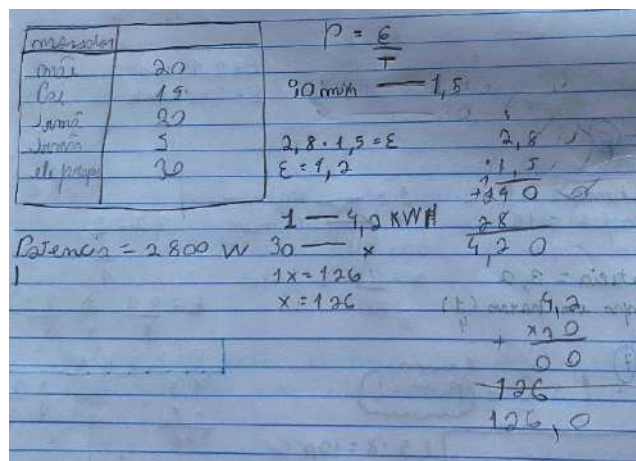 morador
mãe 20
Pai 15
Irmã 20
Irmão 5
ele próprio 30
Potencia = 2800 W
P = E
T
90 min — 1,5
2,8 · 1,5 = E
E = 4,2
1 — 4,2 KWH
30 — x
1x = 126
x = 126
2,8
1,5
+140
28
4,20
4,2
x30
+ 00
126
126,0